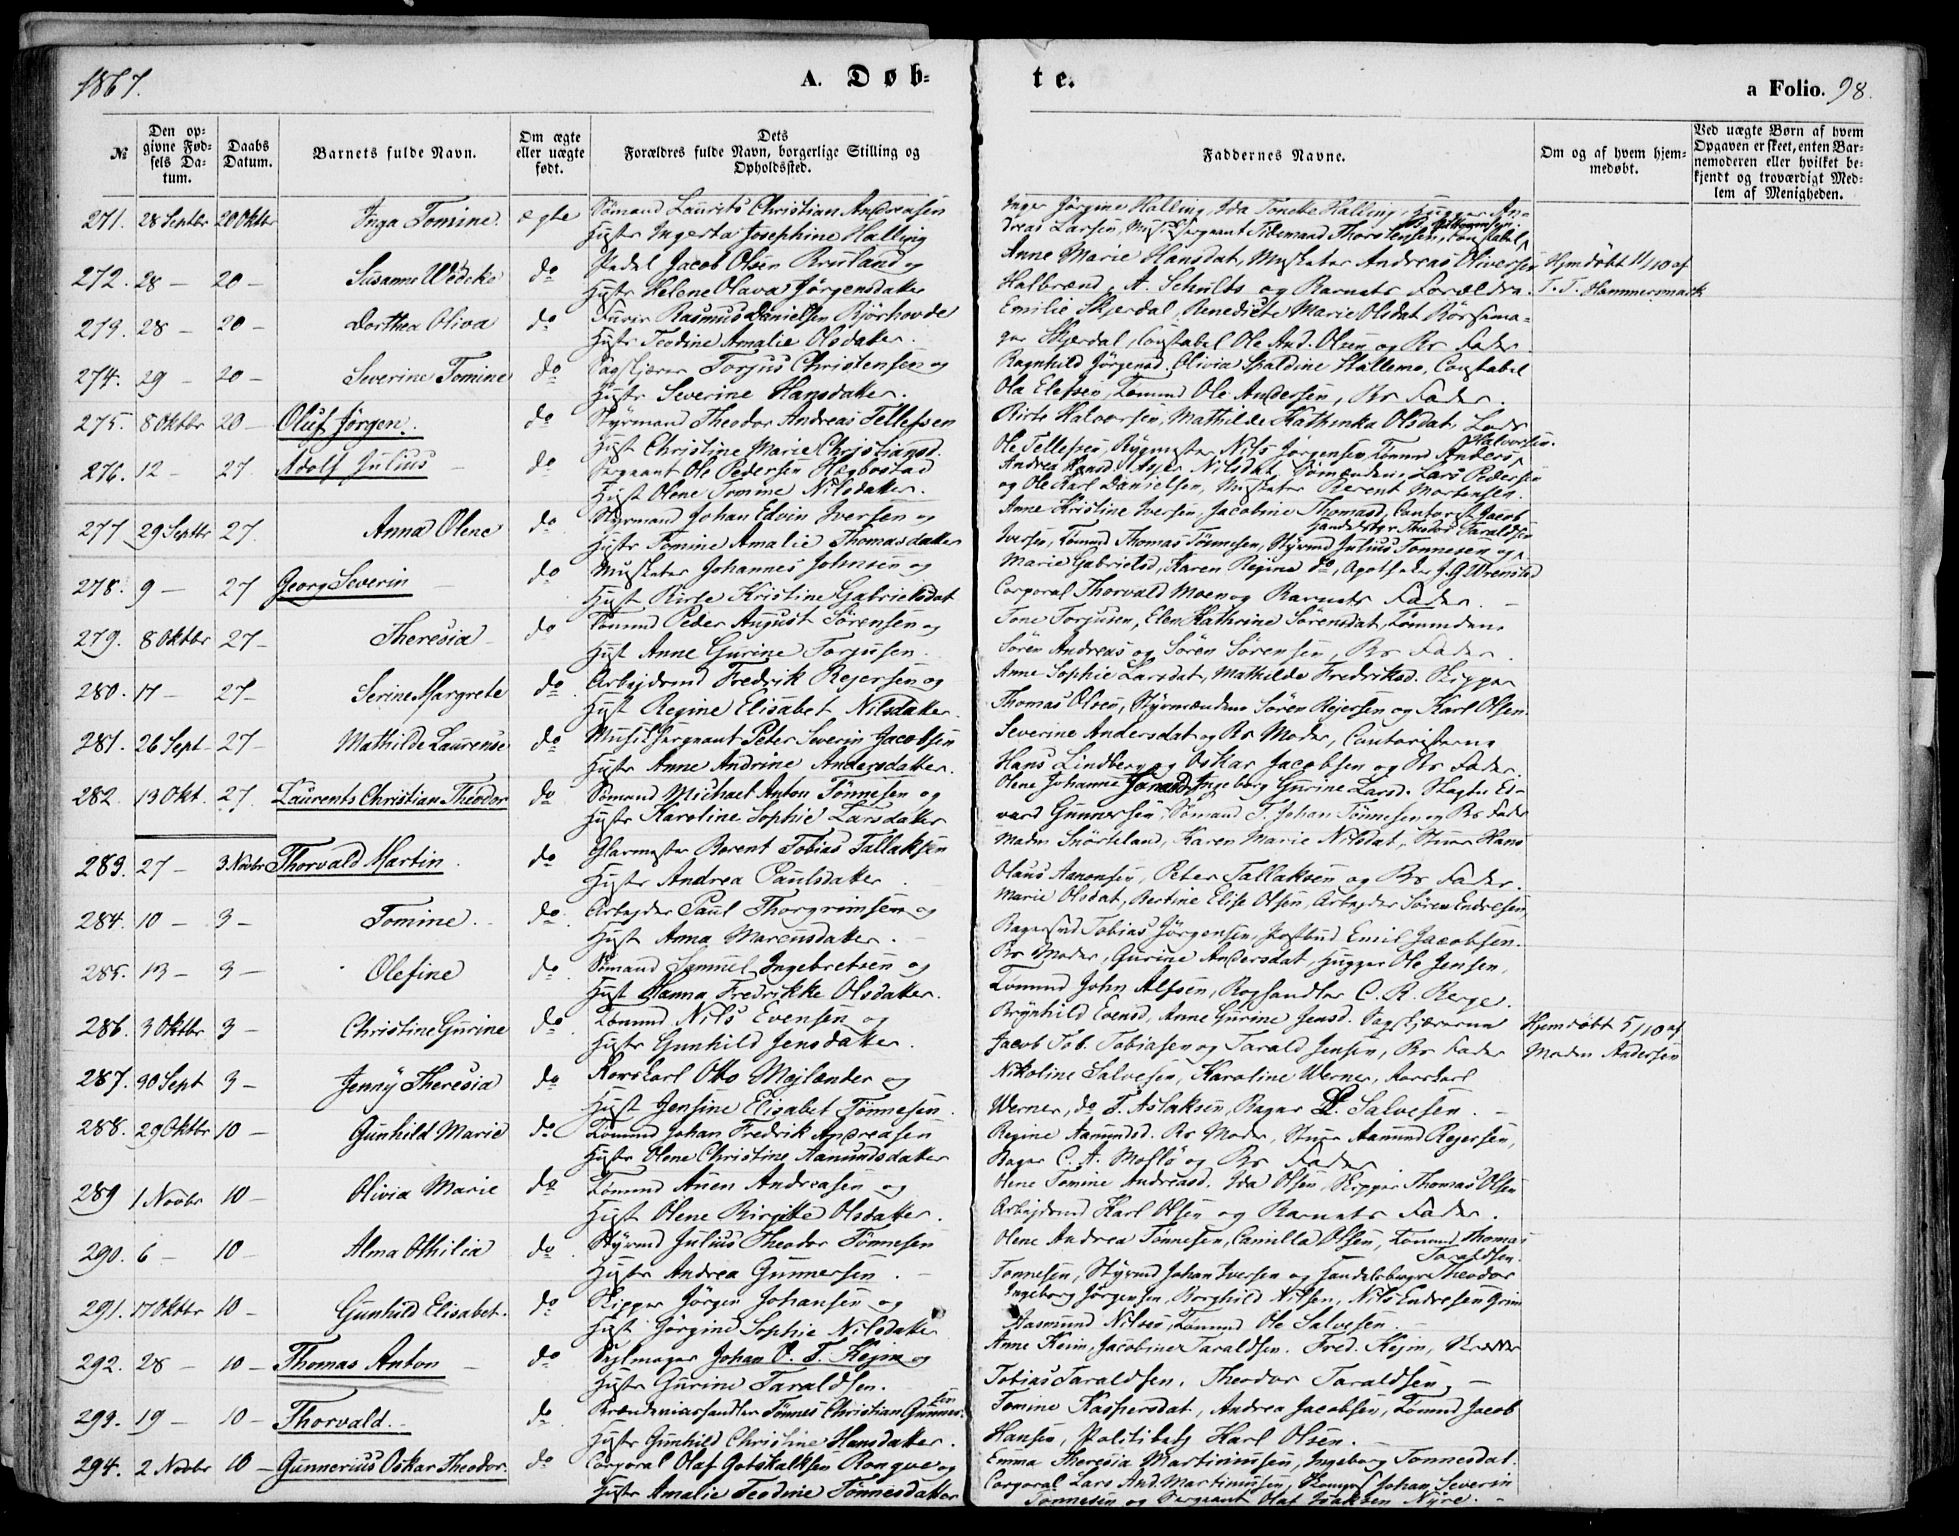 1867.
A. Døb-
te.
a Folio. 98.
№
Den op-
givne Fød-
sels Da-
tum.
Daabs
Datum.
Barnets fulde Navn.
Om ægte
eller uægte
født.
Dets
Forældres fulde Navn, borgerlige Stilling og
Opholdssted.
Faddernes Navne.
Om og af hvem hjem-
medøbt.
Ved uægte Børn af hvem
Opgaven er skeet, enten Bar-
nemoderen eller hvilket be-
kjendt og troværdigt Med-
lem af Menigheden.
271. 28 Septbr 20 Oktbr Inga Tomine. ægte Sømand Laurits Christian Andreasen
Hustr Ingerta Josephine Halling
Inger Jørgine Halling, Ida Toncke Halling, Hugger An-
dreas Larsen, Sergeant Tilemand Thorstensen, Constabel
272. 28 – 20 – Susanne Wedeke do Pedel Jacob Olsen Bruland og
Hustr Helene Olava Jørgensdatter
Anne Marie Hansdat, Musketer Andreas Oliversen
Halbrænd, A. Schults og Barnets Forældre.
Hjemdøbt 11/10 af
T. T. Hammersmark
273. 28 – 20 – Dorthea Oliva do Furer Rasmus Danielsen Bjørhovde
Hustr Teodine Amalie Olsdatter.
Emilie Skjerdal, Benedicte Marie Olsdat, Børsema-
ger Skjerdal, Constabel Ole And. Olsen og Bs Fader
274. 29 – 20 – Severine Tomine do Sagskjærer Torjus Christensen og
Hustr Severine Hansdatter.
Ragnhild Jørgensd. Olivia Spaldine Stallemo, Constabel
Ola Elefsen, Tømmd Ole Andersen, Bs Fader.
275. 8 Oktbr 20 – Oluf Jørgen. do Styrmand Theodor Andreas Tellefsen
Hust Christine Marie Christiansd.
Birte Halvorsen, Mathilde Kathinka Olsdat, Lods
Ole Tellefsen, Bygmester Nils Jørgensen, Tømmd Anders Halvorsen.
276. 12 – 27. Adolf Julius – do Sergeant Ole Pedersen Hægbostad
Hust Olene Tomine Nilsdatter.
Andrea Hansd. Asser Nilsdat, Sømændene Lars Pedersen
og Ole Karl Danielsen, Musketer Berent Mortensen.
277 29 Septbr 27. Anna Olene do Styrmand Johan Edvin Iversen og
Hustr Tomine Amalie Thomasdatter
Anne Kristine Iversen, Jacobine Thomasd, Cantorist Jacob
Iversen, Tømmd Thomas Tønnesen, Styrmd Julius Tønnesen og Handelsbgr Theodor Taraldsen
278. 9 – 27 Georg Severin – do Musketer Johannes Johnsen og
Hust Birte Kristine Gabrielsdat
Marie Gabrielsd, Karen Regine do, Apotheker J. G. Wrensted
Corporal Thorvald Moen og Barnets Fader. –
279. 8 Oktbr 27 – Theresia – do Tømmd Peder August Sørensen og
Hust Anne Gurine Torjusen.
Tone Torjusen, Elen Kathrine Sørensdat, Tømmdene
Søren Andreas og Søren Sørensen, Bs Fader.
280. 17 – 27 – Serine Margrete do Arbejdsmd Fredrik Rejersen og
Hust Regine Elisabet Nilsdatter.
Anne Sophie Larsdat, Mathilde Fredriksd. Skipper
Thomas Olsen, Styrmændene Søren Rejersen og Karl Olsen.
281. 26 Sept 27 – Mathilde Laurense do Musiksergeant Peter Severin Jacobsen
Hustr Anne Andrine Andersdatter.
Severine Andersdat og Bs Moder, Cantoristerne
Hans Lindberg og Oskar Jacobsen og Bs Fader
282. 13 Okt. 27. Laurents Christian Theodor do Sømand Michael Anton Tønnesen og
Hustr Karoline Sophie Larsdatter
Olene Johanne Ingeborg Gurine Larsd. Slagter Ed-
vard Gunnersen, Sømand T. Johan Tønnesen og Bs Fader
283. 27 – 3 Novbr Thorvald Martin. do Glarmester Berent Tobias Tallaksen
Hustr Andrea Paulsdatter.
Madm Snørteland, Karen Marie Nilsdat, Stuer Hans
Olaus Aanonsen, Peter Tallaksen og Bs Fader.
284. 10 – 3 – Tomine. do. Arbejder Paul Thorgrimsen og
Hust Anna Marcusdatter. –
Marie Olsdat, Bertine Elise Olsen, Arbejder Søren Endresen,
Bagersvd Tobias Jørgensen, Postbud Emil Jacobsen.
285. 13 – 3 – Olefine do. Sømand Samuel Ingebretsen og
Hust Hanna Fredrikke Olsdatter.
Bs Moder, Gurine Andersdat, Hugger Ole Jensen,
Tømmd John Alfsen, Boghandler C. R. Berge.
286. 3 Oktbr 3 – Christine Gurine do. Tømmd Nils Evensen og
Hustr Gunhild Jensdatter.
Brynhild Evensd, Anne Gurine Jensd. Sagskjærerne
Jacob Tob. Tobiasen og Tarald Jensen, Bs Fader
Hjemdøbt 5/10 af
Madm Andersen
287. 30 Sept 3 – Jenny Theresia do Korskarl Otto Mejlænder og
Hust Jensine Elisabet Tønnesen.
Nikoline Salvesen, Karoline Werner, Korskarl
Werner, do T. Aslaksen, Bager L. Salvesen. –
288. 29 Oktbr 10 – Gunhild Marie do Tømmd Johan Fredrik Andreasen
Hustr Olene Christine Aanundsdatter
Regine Aanundsd. Bs Moder, Stuer Aanund Rejersen,
Bager C. A. Mosflø og Bs Fader
289 1 Novbr 10 – Olivia Marie do Tømmd Auen Andreasen og
Hust Olene Birgitte Olsdatter.
Olene Tomine Andreasd. Ida Olsen, Skipper Thomas Olsen
Arbejdsmd Karl Olsen og Barnets Fader.
290. 6 – 10 – Alma Othilia do. Styrmd Julius Theodor Tønnesen
Hustr Andrea Gunnersen. –
Olene Andrea Tønnesen, Camilla Olsen, Tømmd Thomas
Tønnesen, Styrmd Johan Iversen og Handelsborger Theodor Taraldsen.
291. 17 Oktbr 10 – Gunhild Elisabet. do. Skipper Jørgen Johansen og
Hust Jørgine Sophie Nilsdatter
Ingeborg Jørgensen, Borghild Nilsen, Nils Endresen Grim
Aasmund Nilsen, Tømmd Ole Salvesen. –
292. 28 – 10 – Thomas Anton – do Sejlmager Johan O. T. Kejm og
Hustr Gurine Taraldsen.
Anne Keim, Jacobine Taraldsen. Fred. Kejm, Skrædder
Tobias Taraldsen, Theodor Taraldsen. –
293. 19 – 10 – Thorvald. – do Brændevinshandler Tønnes Christian Gunner-
sen
Hustr Gunhild Christine Hansdatter.
Tomine Kaspersdat, Andrea Jacobsen, Tømmd Jacob
Hansen, Politibetj Karl Olsen. –
294. 2 Novbr 10 – Gunnerius Oskar Theodor. do Corporal Olaf Gotskalksen Rongve og
Hustr Amalie Teodine Tønnesdatter
Emma Theresia Martinusen, Ingeborg Tønnesdat.
Corporal Lars And. Martinussen, Johan Severin
Tønnesen og Sergeant Olat Isaksen Nyre. –